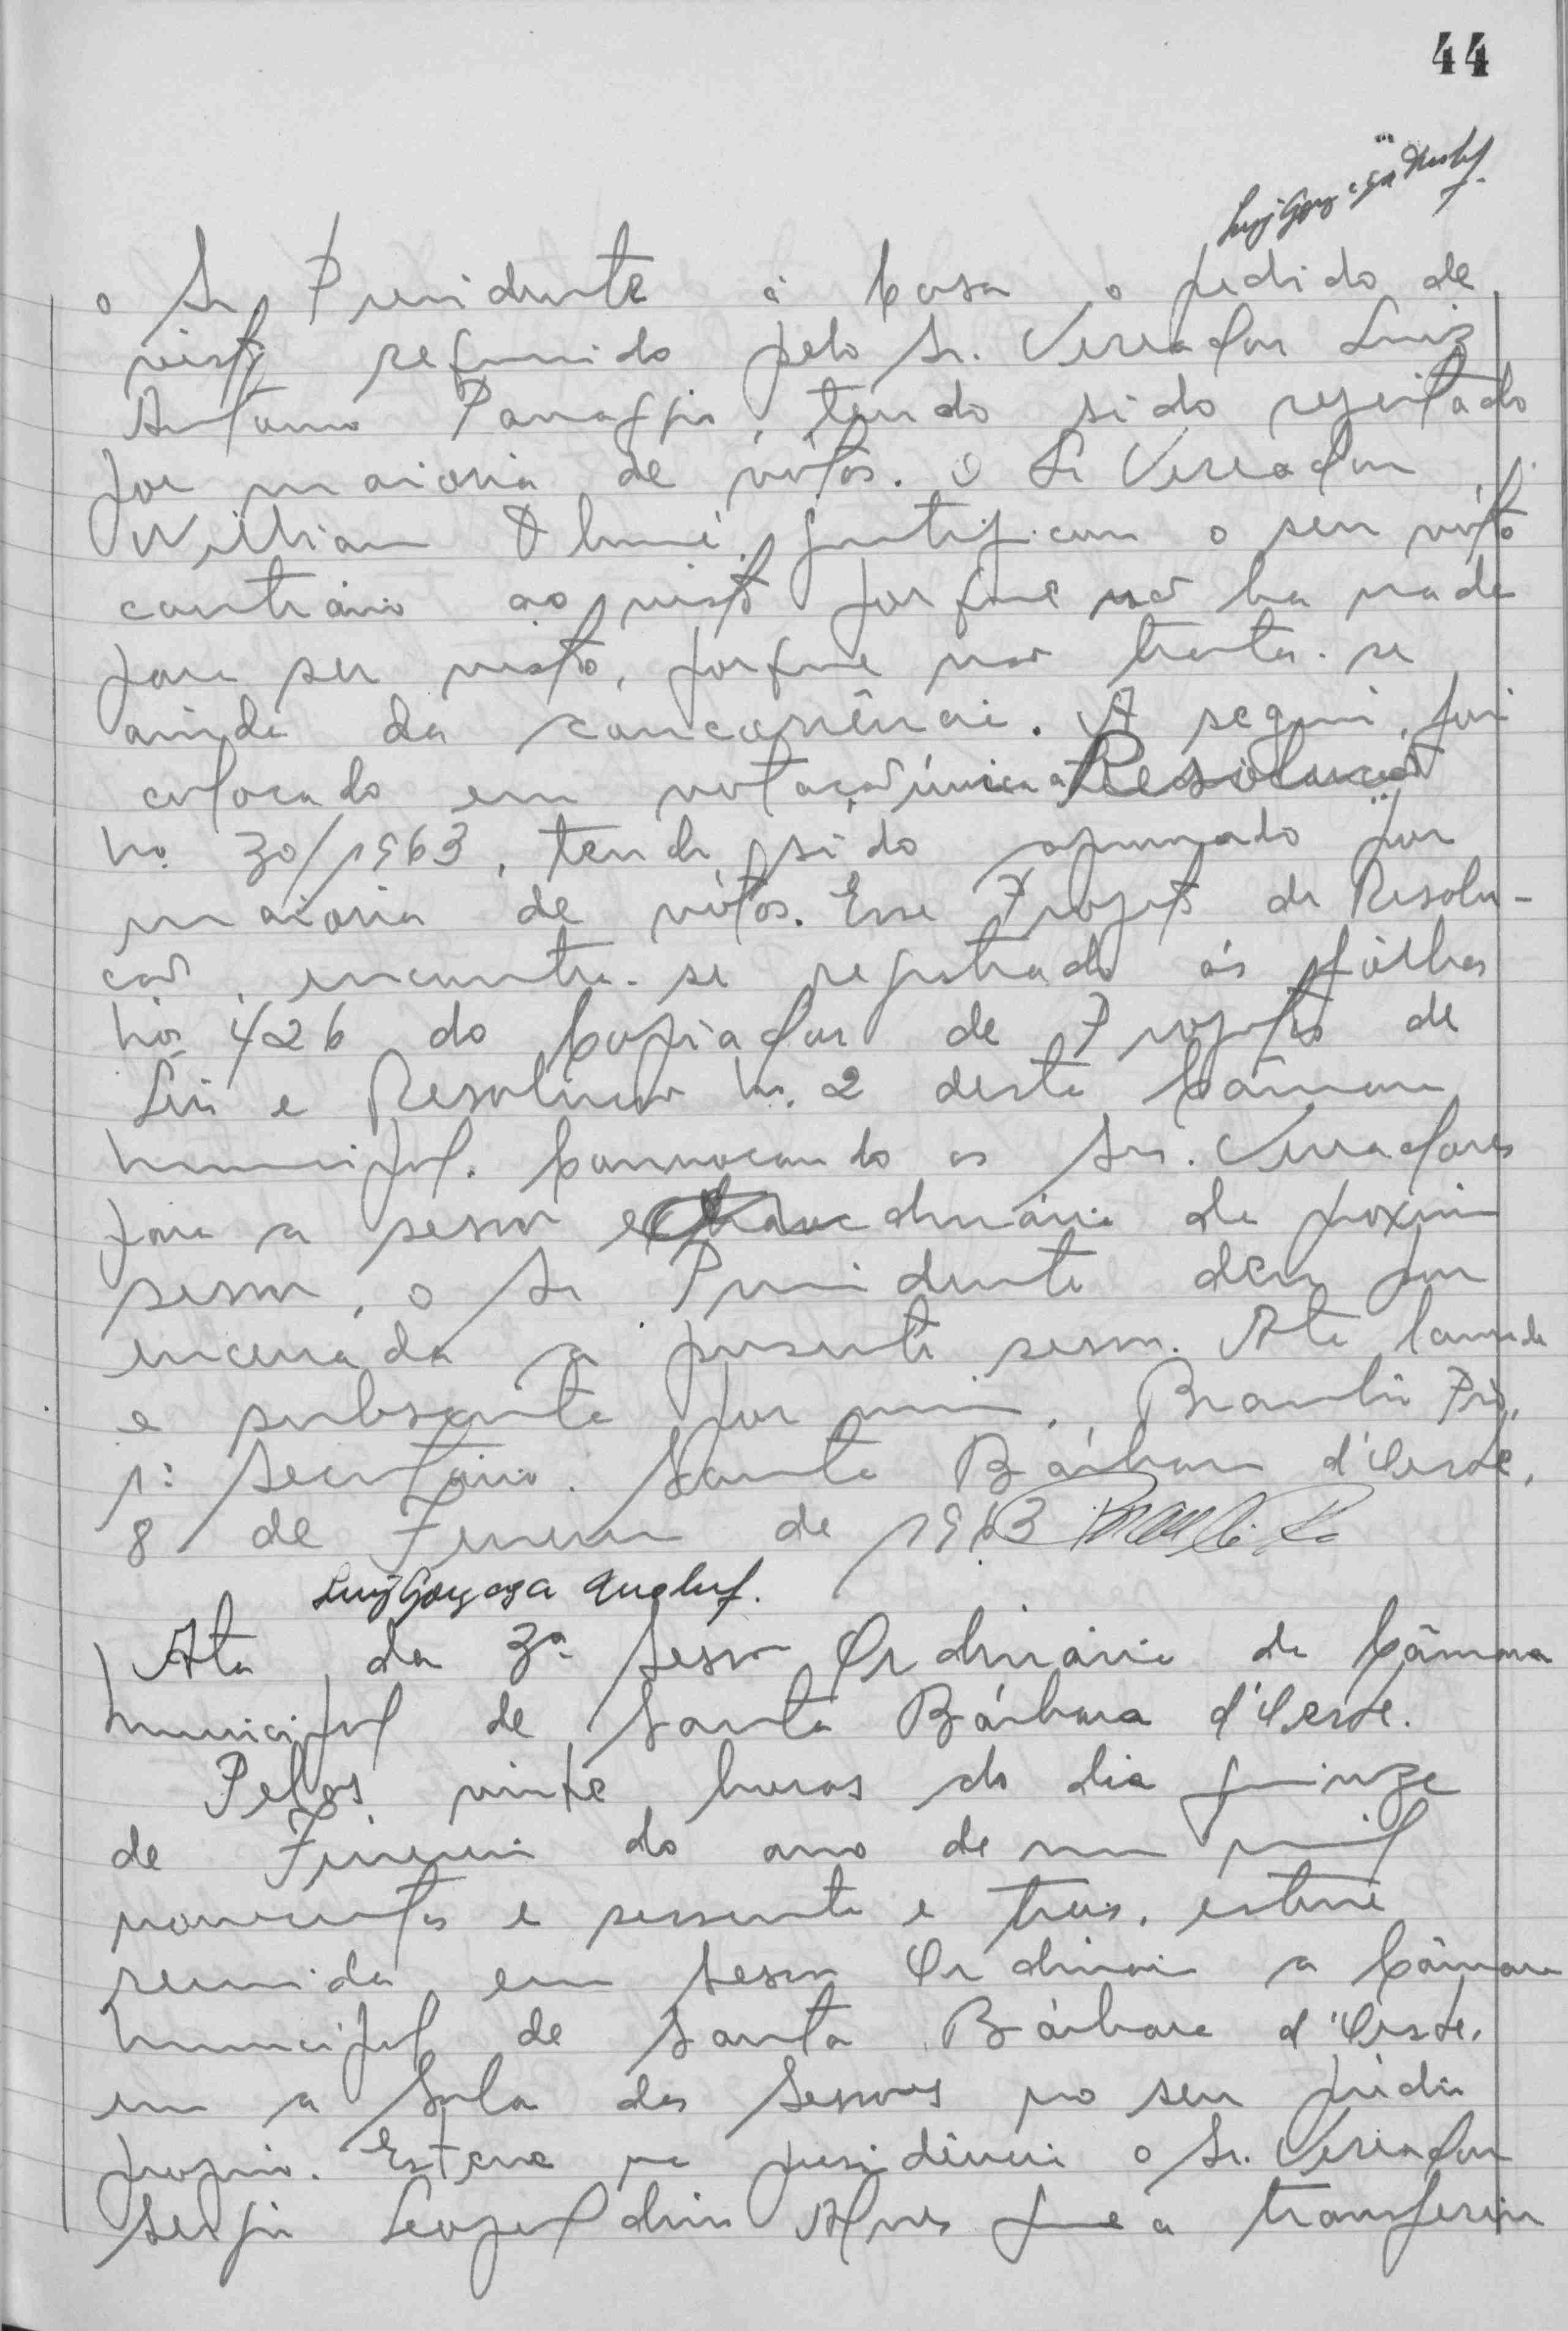 44
o Sr Presidente à Casa o pedido de
vista requerido pelo Sr. Vereador Luiz
Antonio Panaggio, tendo sido rejeitado
por maioria de vótos. O Sr Vereador
Willian justificou o seu vóto
contrário ao visto por que não ha nada
para ser visto, porque não trata-se
ainda da concorrência. A seguir, foi
colocado em votação única a Resolução
no. 30/1963, tendo sido aprovado por
maioria de vótos. Esse Projeto de Resolu-
ção, encontra-se registrado ás fôlhas
nos. 426 do Copiador de Projetos de
Leis e Resolução no. 2 desta Câmara
Municipal. Convocando os Srs. Vereadores
para a sessão da proxima
sessão, o Sr Presidente deu por
encerrada a presente sessão. Ata lavrada
e subscrita por mim, Braulio Pio,
1º Secretário. Santa Bárbara d'Oeste,
8 de Fevereiro de 1963
Ata da 3ª Sessão Ordinária da Câmara
Municipal de Santa Bárbara d'Oeste.
Pelas vinte horas do dia quinze
de Fevereiro do ano de um mil
novecentos e sessenta e tres, esteve
reunida em Sessão Ordinária a Câmara
Municipal de Santa Bárbara d'Oeste,
em a Sala das Sessões no seu prédio
proprio. Esteve na presidência o Sr. Vereador
Sergio Leopoldino Alves que a transferiu